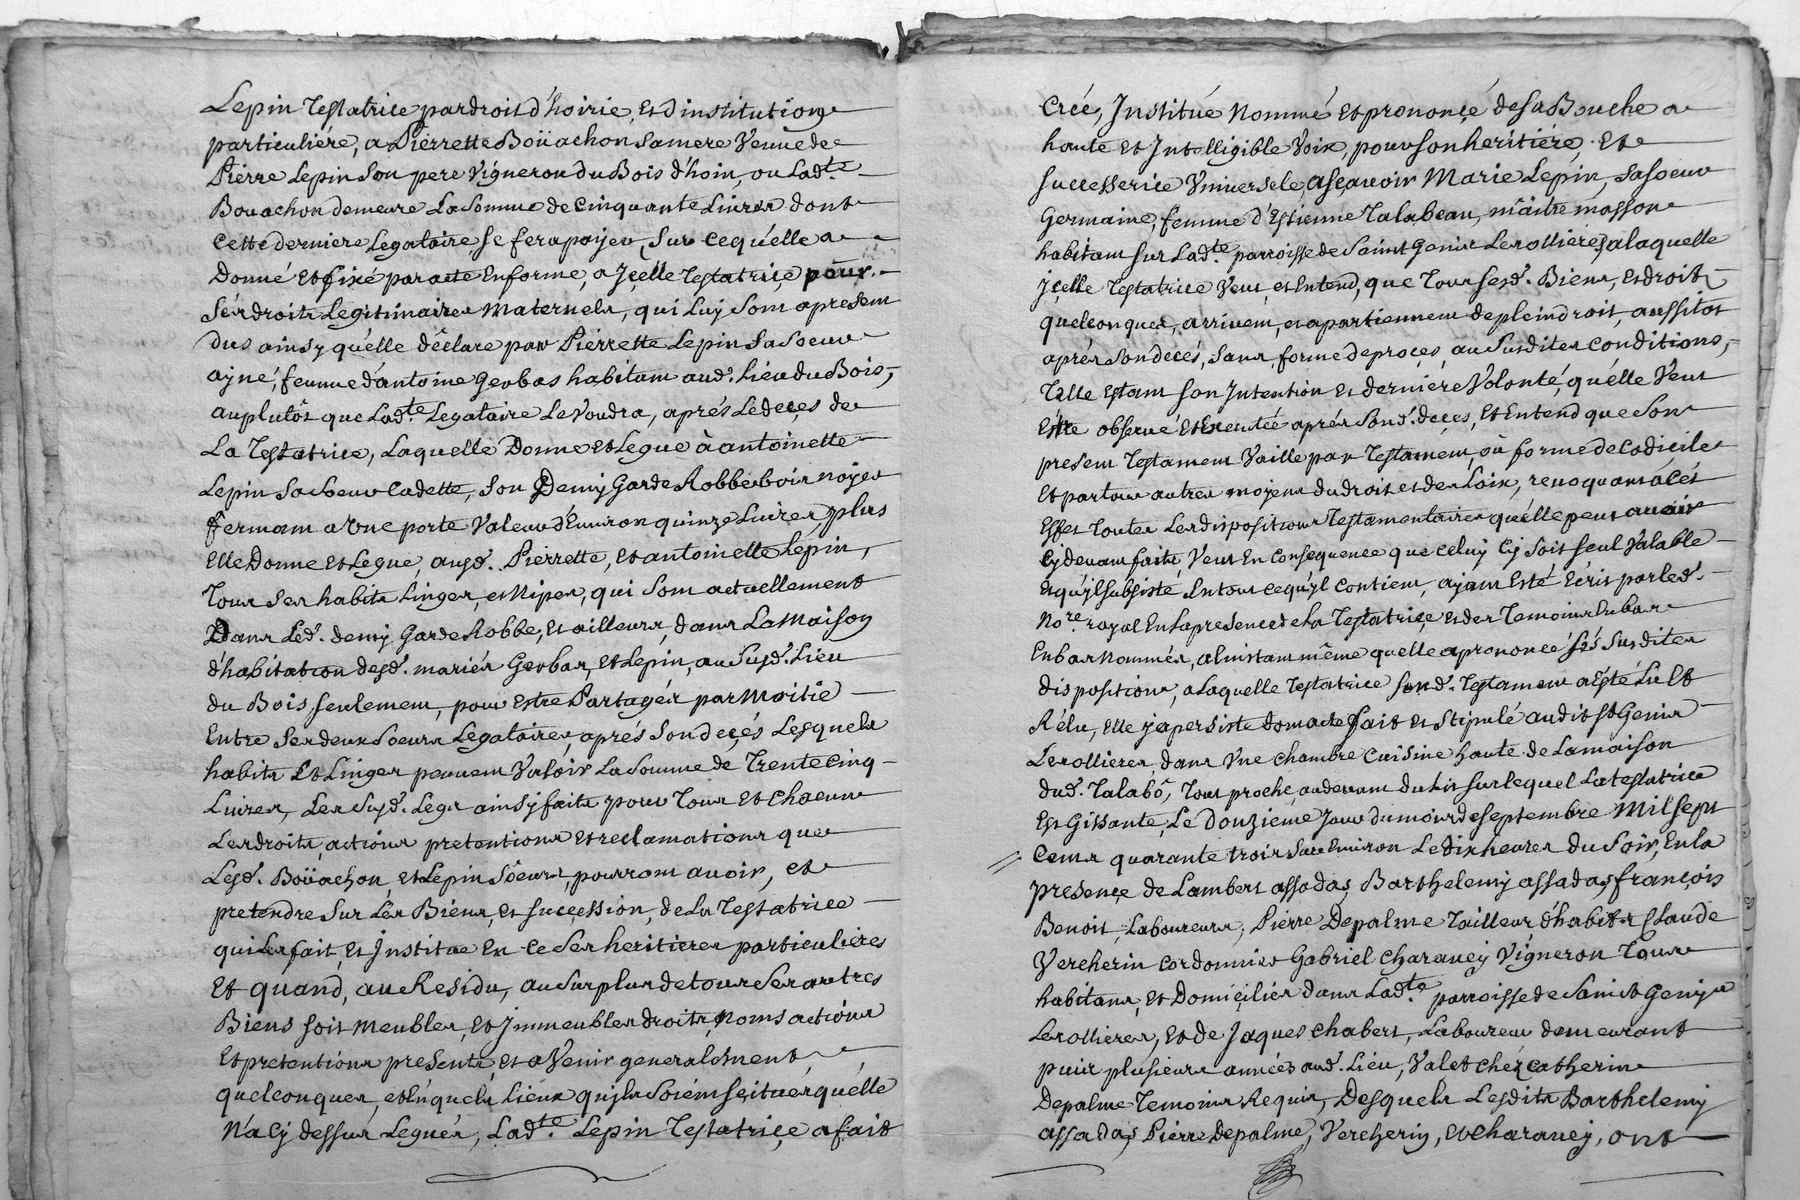 Lepin Testatrice par droit d'hoirie, et d'institution
particuliére, a Pierrette Boüachon sa mere Veuve de
Pierre Lepin Son pere Vigneron du Bois d'hoin, ou Ladte
Bouachon demeure La Somme de Cinquante Livres dont
Cette derniere Legataire se fera païjer, Sur ce qu'elle a
Donné et fixé par acte En forme, a Jcelle Testatrice pour
Sés droits Legitimaires Maternels, qui Luy Sont a present
dus ainsy qu'elle déclare par Pierrette Lepin Sa Soeur
aÿné, femme d'antoine Gerbas habitant aud. Lieu du Bois,
au plutôt que Ladte Legataire Le Voudra, aprés Le deçes de
La Testatrice, Laquelle Donne et Legue à antoinette
Lepin Sa Soeur Cadette, Son Demy Garde Robbe bois noyer
fermant a Vne porte Valeur d'Environ quinze Livres, plus
Elle Donne et Legue, ausd. Pierrette, et antoinette Lepin,
Tous Ses habits Linges, et Nipes, qui Sont actuellement
Dans Led. demy Garde Robbe, et ailleurs, dans La Maison
d'habitation desd. mariés Gerbas, et Lepin, au Susd. Lieu
du Bois, seulement, pour Estre Partagés par Moitié
Entre Ses deux Soeurs Legataires, aprés Son deçés Lesquels
habits Et Linges peuvent Valoir La Somme de Trente Cinq
Livres, Les Susd. Legs ainsÿ faits pour Tous Et Chacuns
Les droits, actions pretentions et reclamations que
Lesd. Boüachon, et Lépin Soeurs, pourront avoir, et
pretendre Sur Les Biens, et succession, de La Testatrice
qui Les fait, et Institue En ce Ses heritieres particuliéres
Et quand, au Residu, au Surplus de tous Ses autres
Biens soit meubles, et Jmmeubles droits, noms actions
Et pretentions presents, et a Venir generalement
quelconques, et En quels Lieux qu'jls Soient Scitues qu'elle
N'a Cÿ dessus Legués, Ladte Lepin Testatriçe a fait
Créé, Institué Nommé et prononçé de Sa Bouche a
haute et Intelligible Voix, pour son heritiére, Et
successerice Vniversele, asçavoir Marie Lepin, Sa Soeur
Germaine, femme d'Estienne Talabeau, maître masson
habitant sur Ladte parroisse de Saint Genis Lerollieres, a laquelle
Jçelle Testatrice Veut, et Entend, que Tous Sesd. Biens, et droits
quelconques, arrivent, et apartiennent de plein droit, aussitot
aprés Son decés, Sans forme de proçes, au Susdites conditions,
Telle Estant Son Intention et derniere Volonté, qu'elle Veut
Estre observé et Executée aprés Sond. deces, et Entend que Son
present Testament Vaille par Testament, ou forme de Codicile
Et par tous autres moyens du droit et des Loix, revoquant à cét
Effet Toutes Les dispositions Testamentaires qu'elle peut avoir
Cy devant faits, Veut En Consequence que Celuy Cy Soit Seul Valable
Et qu'jl subsiste En tout ce qu'jl Contient, ajant Esté Ecrit par led.
Nore. royal En La presence de La Testatriçe et des Temoins En bas
En bas Nommés, a l'instant même quelle a prononcé sés Susdites
dispositions, a Laquelle Testatrice Sond. Testament a Esté Lu Et
Rélu, Elle y a persiste dont acte fait et Stipulé audit St Genis
Lerollieres dans Vne Chambre Cuisine haute de La maison
dud. Talabô, Tout proche, au devant du Lit sur lequel La testatrice
Est Gissante, Le Douzieme Jour du mois de Septembre Mil Sept
Cents quarante trois Sur Environ Le dix heures du Soir, En la
presençe de Lambert assadas, Barthelemy assadas, françois
Benoit, Laboureurs, Pierre Depalme Tailleur d'habits Claude
Vercherin Cordonnier Gabriel Charavey Vigneron Tous
habitans, et Domiçiliés dans Ladte parroisse de Saint Genis
Lerollieres, Et de Jaques Chabert, Laboureur demeurant
puis plusieurs années aud. Lieu, Valet chéz Catherin
Depalme Temoins Requis, Desquels Lesdits Barthelemy
assadas, Pierre Depalme, Vercherin, et Charavey, ont